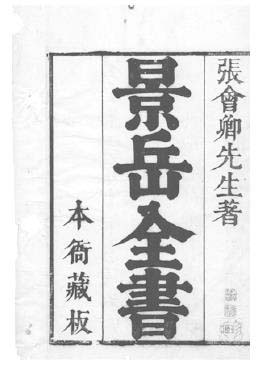 張會卿先生著
景岳全書
本衙藏板